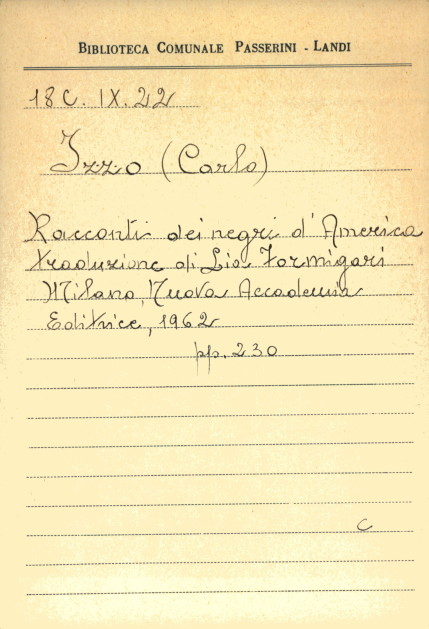 BIBLIOTECA COMUNALE PASSERINI - LANDI
18 C. IX. 22
Izzo (Carlo)
Racconti dei negri d'America
traduzione di Lia Formigari
Milano, Nuova Accademia
Editrice, 1962
pp. 230
C